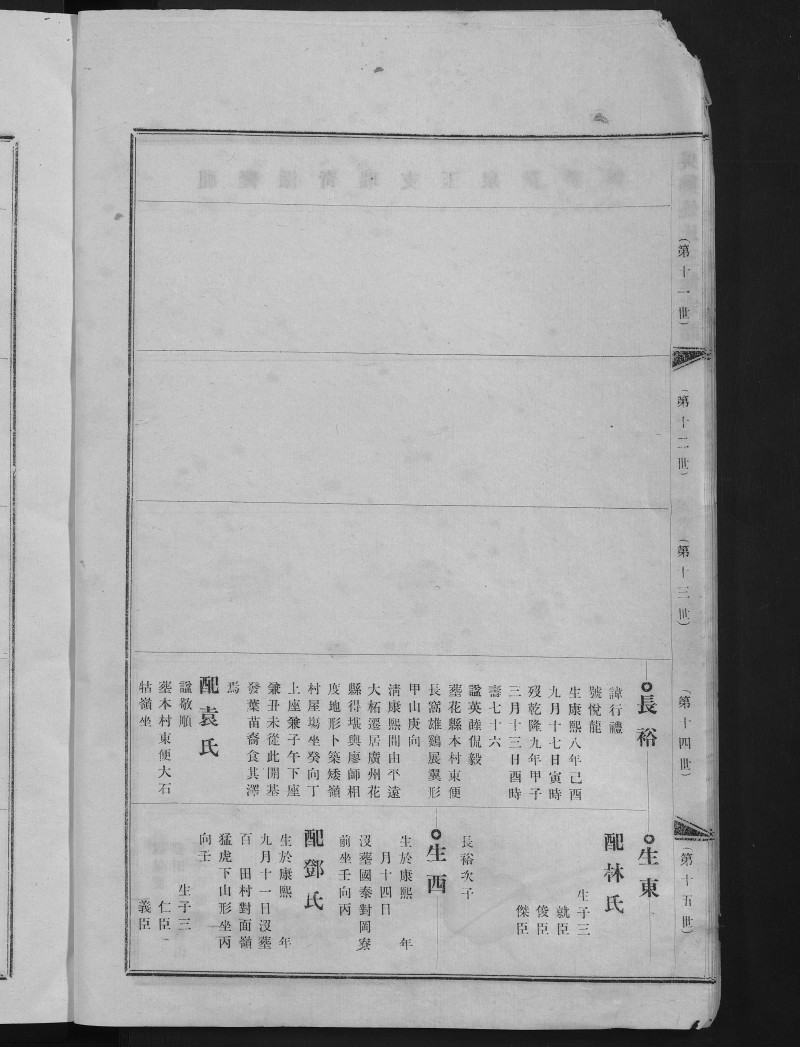 (第十一世)
(第十二世)
(第十三世)
(第十四世)
(第十五世)
長裕
諱行禮
號悅龍
生康熙八年己酉
九月十七日寅時
歿乾隆九年甲子
三月十三日酉時
壽七十六
諡英睦侃毅
葬花縣本村東便
長窩雄鷄展翼形
甲山庚向
清康熙間由平遠
大柘遷居廣州花
縣得堪輿廖師相
度地形卜築矮嶺
村屋塲坐癸向丁
上座兼子午下座
兼丑未從此開基
發葉苗裔食其澤
焉
配袁氏
諡敬順
葬本村東便大石
牯嶺坐
生東
配林氏
生子三
就臣
俊臣
傑臣
生西
長裕次子
生於康熙　年
月十四日
沒葬國泰對岡寮
前坐壬向丙
配鄧氏
生於康熙　年
九月十一日沒葬
百　田村對面嶺
猛虎下山形坐丙
向壬
生子三
仁臣
義臣